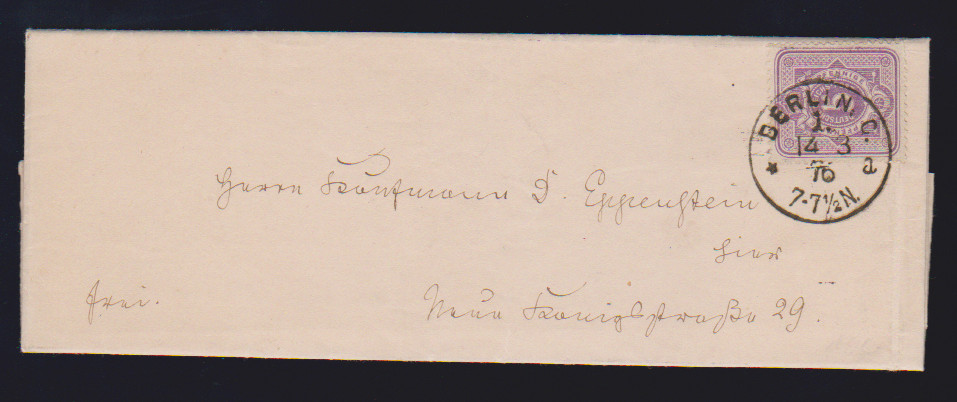 PFENNIGE
BERLIN. C.
1.
14 3
76
7-7½N.
a
Herrn Kaufmann D. Eppenstein
hier
frei.
Neue Königsstraße 29.